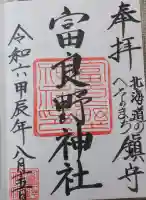 奉拝
北海道の
へそのまち
鎮守
富良野神社
令和六甲辰年八月五日